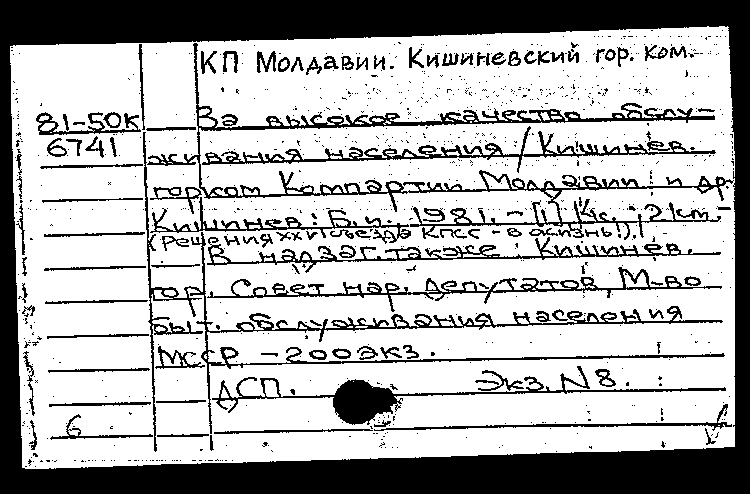 КП Молдавии. Кишиневский гор. ком.
81-50к За высокое качество обслу-
6741 живания населения / Кишинев.
горком Компартии Молдавии и др.
Кишинев: Б.и., 1981. - [1] с.; 21 см. -
(Решения XXVI съезда КПСС - в жизнь!).
В надзаг. также: Кишинев.
гор. Совет нар. депутатов, М-во
быт. обслуживания населения
МССР. - 200 экз.
ДСП. Экз. N 8.
6